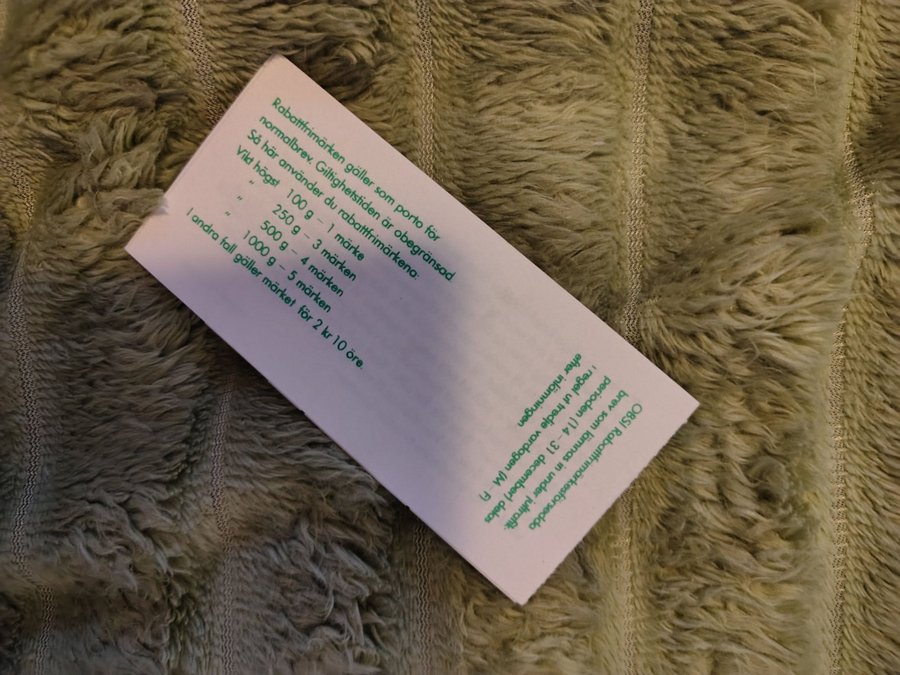 Rabattfrimärken gäller som porto för
normalbrev. Giltighetstiden är obegränsad.
Så här använder du rabattfrimärkena:
Vikt högst 100 g – 1 märke
" 250 g – 3 märken
" 500 g – 4 märken
" 1000 g – 5 märken
I andra fall gäller märket för 2 kr 10 öre.
OBS! Rabattfrimärkesförsedda
brev som lämnas in under jultrafik-
perioden (14–31 december) delas
i regel ut tredje vardagen (M–F)
efter inlämningen